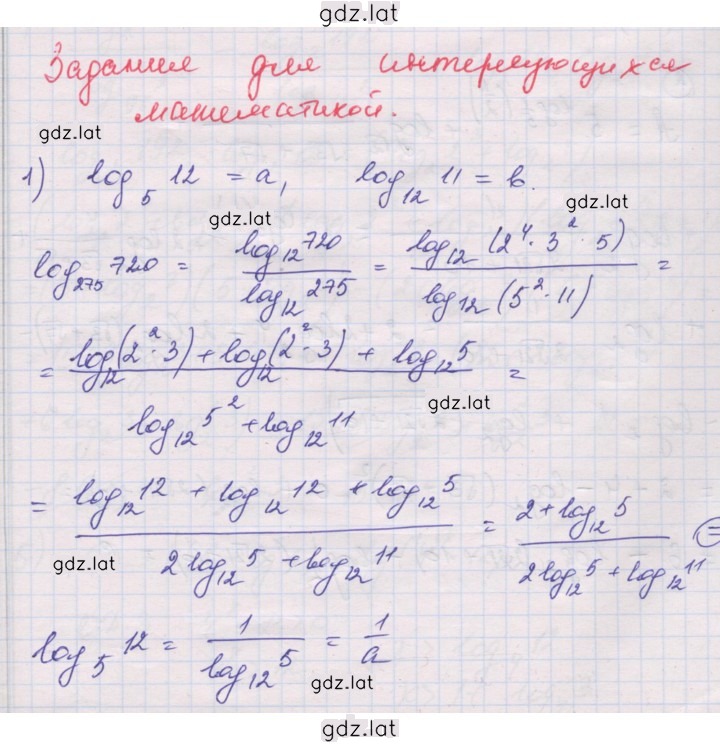 gdz.lat
Задания для интересующихся
математикой.
gdz.lat
1) log₅ 12 = a, log₁₂ 11 = b.
gdz.lat
gdz.lat
log₂₇₅ 720 = log₁₂ 720 / log₁₂ 275 = log₁₂ (2⁴ · 3² · 5) / log₁₂ (5² · 11) =
= log₁₂ (2² · 3) + log₁₂ (2² · 3) + log₁₂ 5 / log₁₂ 5² + log₁₂ 11 =
gdz.lat
= log₁₂ 12 + log₁₂ 12 + log₁₂ 5 / 2 log₁₂ 5 + log₁₂ 11 = 2 + log₁₂ 5 / 2 log₁₂ 5 + log₁₂ 11 =
gdz.lat
log₅ 12 = 1 / log₁₂ 5 = 1 / a
gdz.lat
gdz.lat